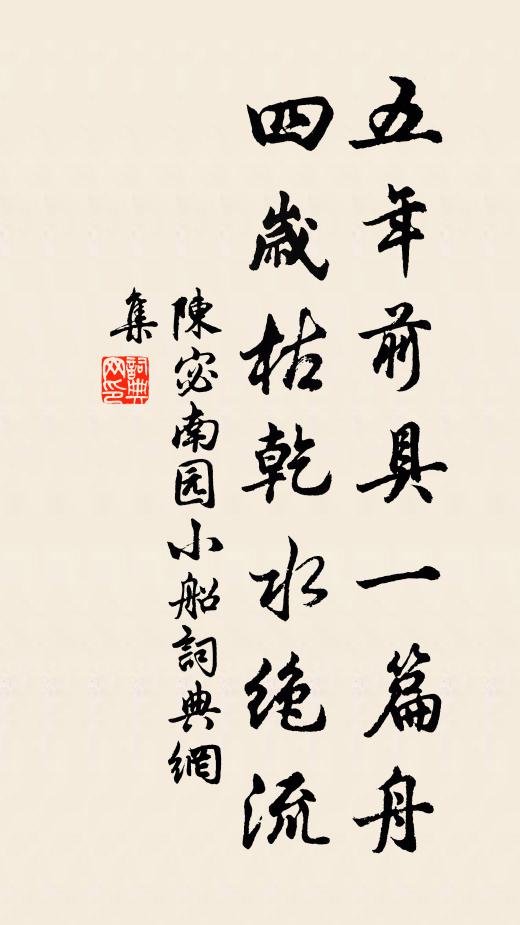 五年前具一篇舟
四歲枯乾水绝流
陳宓南园小船詞典網
集
詞典网印